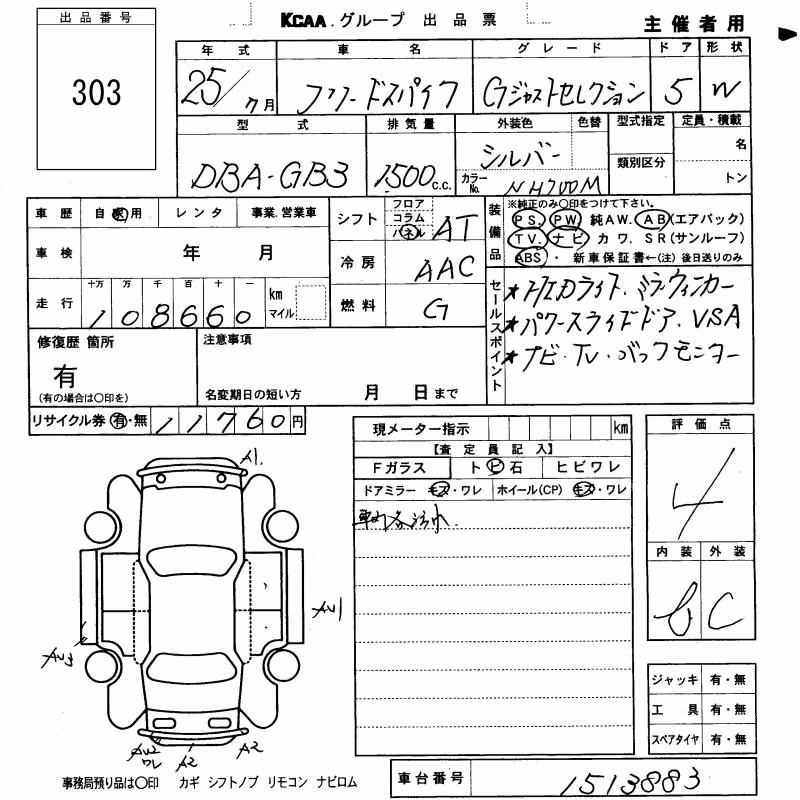 出品番号
303
KCAA.グループ 出品票
主催者用
年式 車名 グレード ドア 形状
25/7月 フリードスパイク Gジャストセレクション 5 W
型式 排気量 外装色 色替 型式指定 定員・積載
DBA-GB3 1500c.c. シルバー カラーNo. NH700M 類別区分 名 トン
車歴 自家用 レンタ 事業.営業車
車検 年 月
走行 十万 万 千 百 十 一 km マイル
108660
シフト フロア コラム パネル AT
冷房 AAC
燃料 G
装備品 ※純正のみ〇印をつけて下さい。
PS. PW 純AW. AB(エアバック)
TV. ナビ カワ. SR(サンルーフ)
ABS ・ 新車保証書←(注) 後日送りのみ
セールスポイント
★HIDライト.ミラーウィンカー
★パワースライドドア.VSA
★ナビ・TV・バックモニター
修復歴 箇所
有
(有の場合は〇印を)
注意事項
名変期日の短い方 月 日まで
リサイクル券 有・無 11760円
現メーター指示 km
【査定員記入】
Fガラス トビ石 ヒビワレ
ドアミラー キズ・ワレ ホイール(CP) キズ・ワレ
車内各汚れ.
評価点
4
内装 外装
b C
A1.
AU1
AU3
AU2
ワレ
A2
A2
ジャッキ 有・無
工具 有・無
スペアタイヤ 有・無
事務局預り品は〇印 カギ シフトノブ リモコン ナビロム
車台番号 1513883